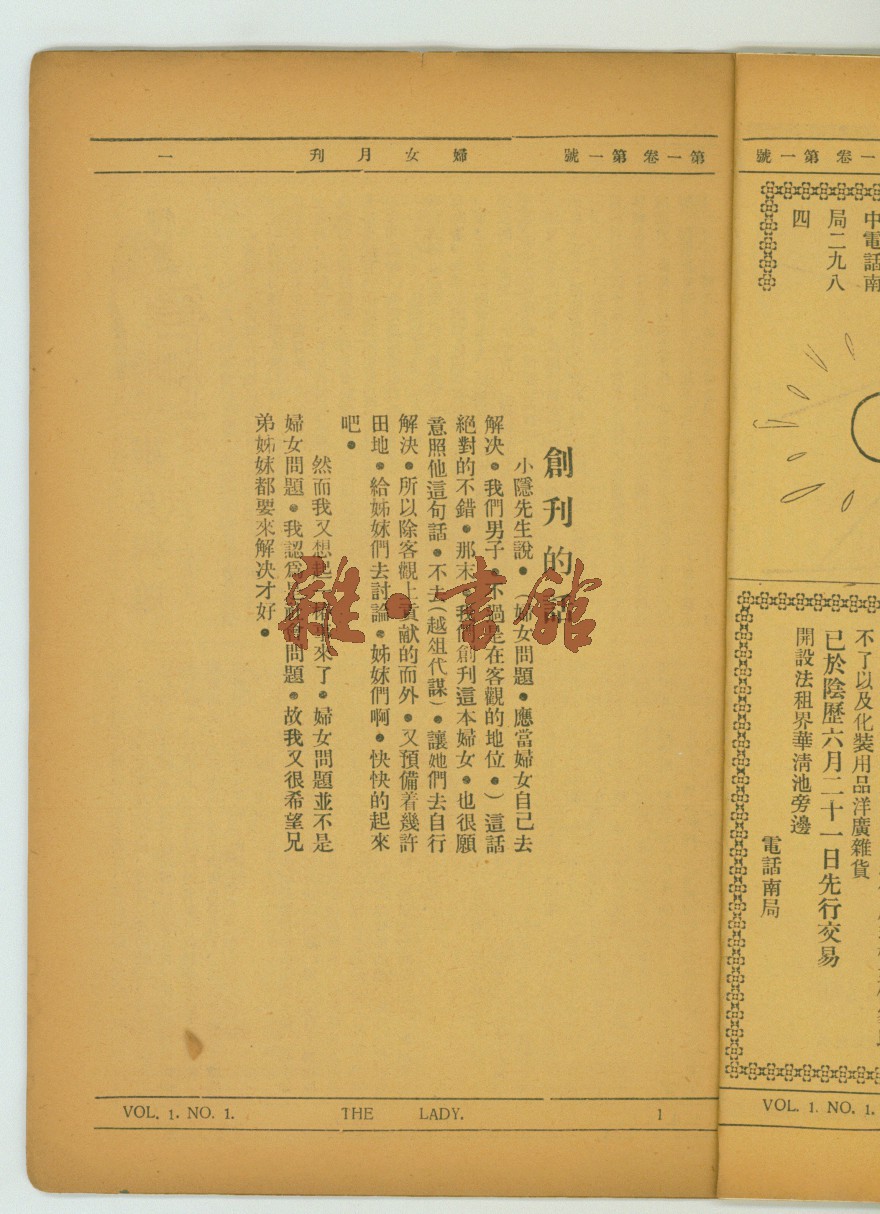 第一卷第一號
婦女月刊
一
創刊的話
小隱先生說●（婦女問題●應當婦女自己去
解决●我們男子●不過是在客觀的地位●）這話
絕對的不錯●那末●我們創刊這本婦女●也很願
意照他這句話●不去（越俎代謀）●讓她們去自行
解決●所以除客觀上貢献的而外●又預備着幾許
田地●給姊妹們去討論●姊妹們啊●快快的起來
吧●
然而我又想起 來了●婦女問題並不是
婦女問題●我認爲是社會問題●故我又很希望兄
弟姊妹都要來解决才好●
雜●書館
VOL. 1. NO. 1.
THE LADY.
1
一卷第一號
中電話南
局二九八
四
不了以及化裝用品洋廣雜貨
已於陰歷六月二十一日先行交易
開設法租界華清池旁邊
電話南局
VOL. 1. NO. 1.